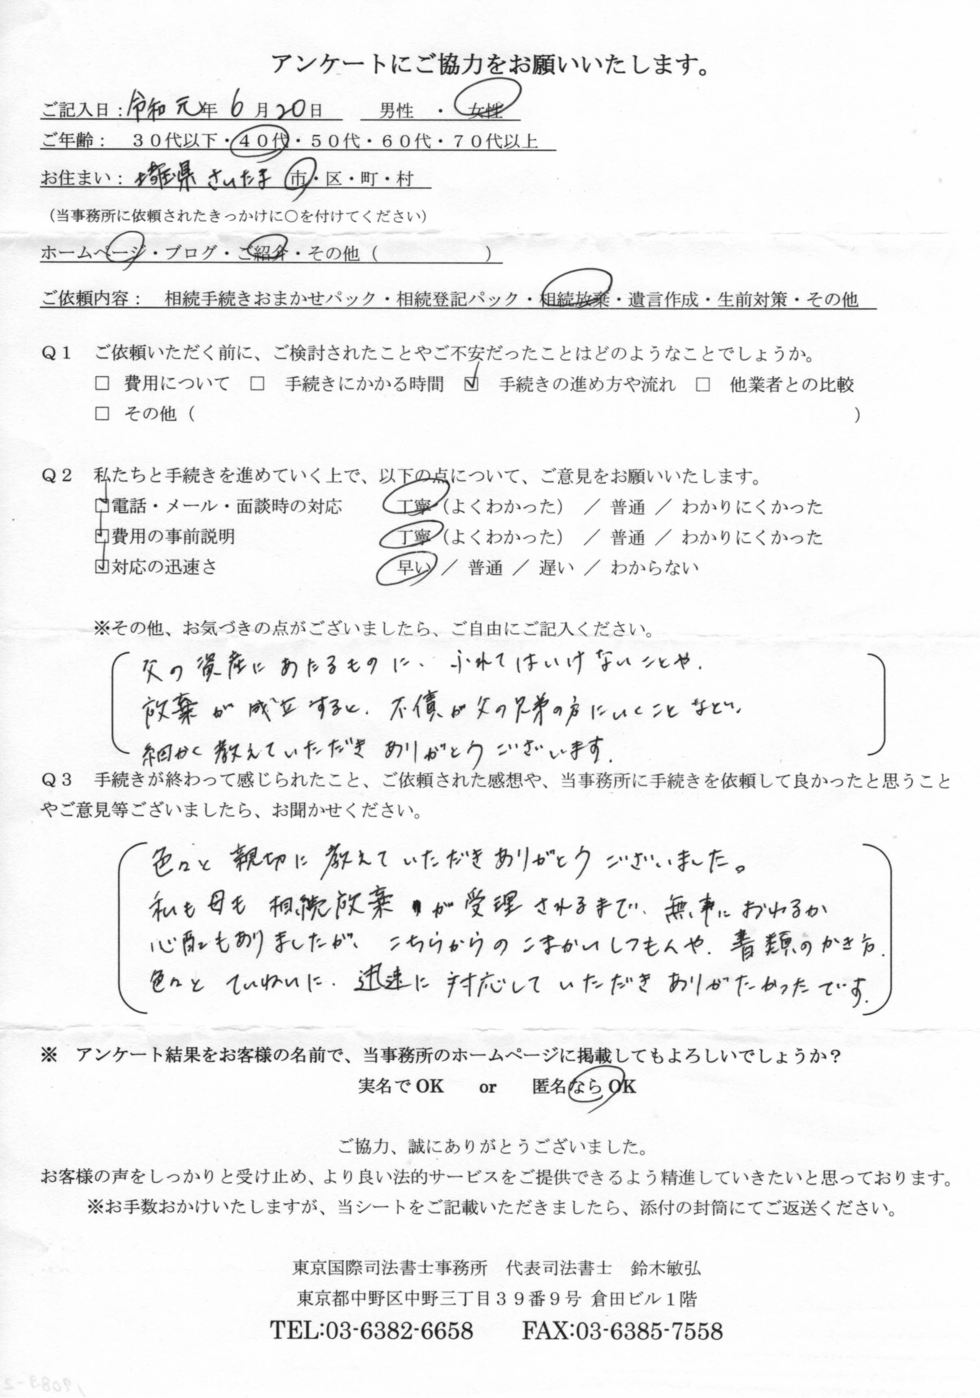 アンケートにご協力をお願いいたします。
ご記入日：令和元年6月20日　男性・女性
ご年齢：　３０代以下・４０代・５０代・６０代・７０代以上
お住まい：埼玉県さいたま市・区・町・村
（当事務所に依頼されたきっかけに○を付けてください）
ホームページ・ブログ・ご紹介・その他（　　　　　　）
ご依頼内容：　相続手続きおまかせパック・相続登記パック・相続放棄・遺言作成・生前対策・その他
Ｑ１　ご依頼いただく前に、ご検討されたことやご不安だったことはどのようなことでしょうか。
□　費用について　□　手続きにかかる時間　☑　手続きの進め方や流れ　□　他業者との比較
□　その他（　　　　　　　　　　　　　　　　　　　　　　　　　　　　）
Ｑ２　私たちと手続きを進めていく上で、以下の点について、ご意見をお願いいたします。
☑電話・メール・面談時の対応　　丁寧（よくわかった）　／　普通　／　わかりにくかった
☑費用の事前説明　　丁寧（よくわかった）　／　普通　／　わかりにくかった
☑対応の迅速さ　　早い　／　普通　／　遅い　／　わからない
※その他、お気づきの点がございましたら、ご自由にご記入ください。
父の資産にあたるものに、ふれてはいけないことや、
放棄が成立すると、不債が父の兄弟の方にいくことなど、
細かく教えていただきありがとうございます。
Ｑ３　手続きが終わって感じられたこと、ご依頼された感想や、当事務所に手続きを依頼して良かったと思うこと
やご意見等ございましたら、お聞かせください。
色々と親切に教えていただきありがとうございました。
私も母も相続放棄が受理されるまで、無事におわるか
心配もありましたが、こちらからのこまかいしつもんや、書類のかき方、
色々とていねいに、迅速に対応していただきありがたかったです。
※　アンケート結果をお客様の名前で、当事務所のホームページに掲載してもよろしいでしょうか？
実名でOK　　or　　匿名ならOK
ご協力、誠にありがとうございました。
お客様の声をしっかりと受け止め、より良い法的サービスをご提供できるよう精進していきたいと思っております。
※お手数おかけいたしますが、当シートをご記載いただきましたら、添付の封筒にてご返送ください。
東京国際司法書士事務所　代表司法書士　鈴木敏弘
東京都中野区中野三丁目３９番９号 倉田ビル１階
TEL:03-6382-6658　　FAX:03-6385-7558